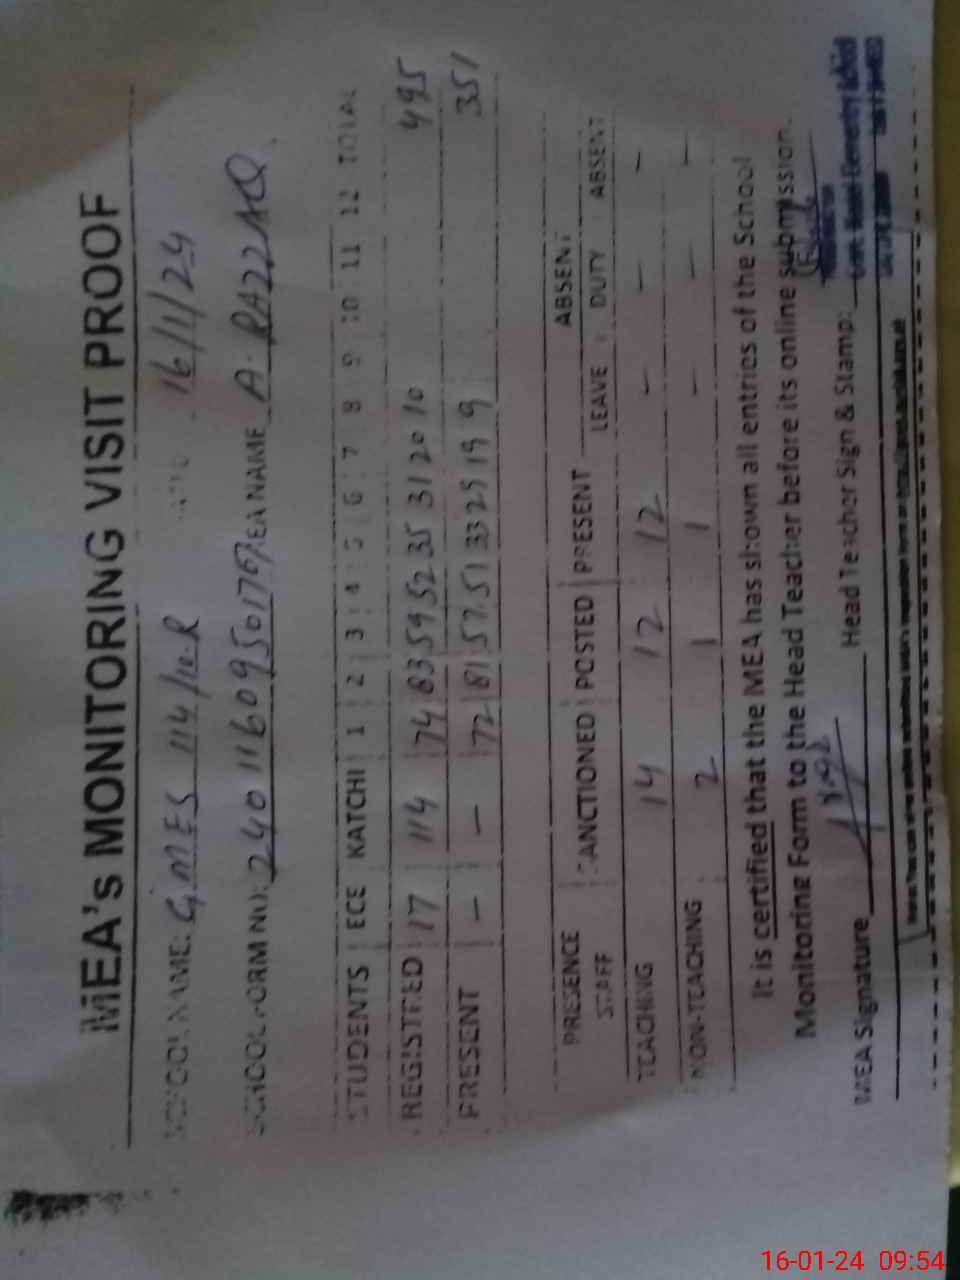 MEA's MONITORING VISIT PROOF
SCHOOL NAME: GMES 114/10-R DATE 16/1/24
SCHOOL FORM NO: MEA NAME A. RAZZAQ
STUDENTS ECE KATCHI 1 2 3 4 5 6 7 8 9 10 11 12 TOTAL
REGISTERED 17 114 74 83 59 52 35 31 20 10 495
PRESENT - - 72 81 57 51 33 29 19 9 351
PRESENCE STAFF SANCTIONED POSTED PRESENT LEAVE ABSENT DUTY ABSENT
TEACHING 14 12 12 - - -
NON-TEACHING 2 1 1 - - -
It is certified that the MEA has shown all entries of the School
Monitoring Form to the Head Teacher before its online submission.
MEA Signature Head Teacher Sign & Stamp:
Elementary School
16-01-24 09:54